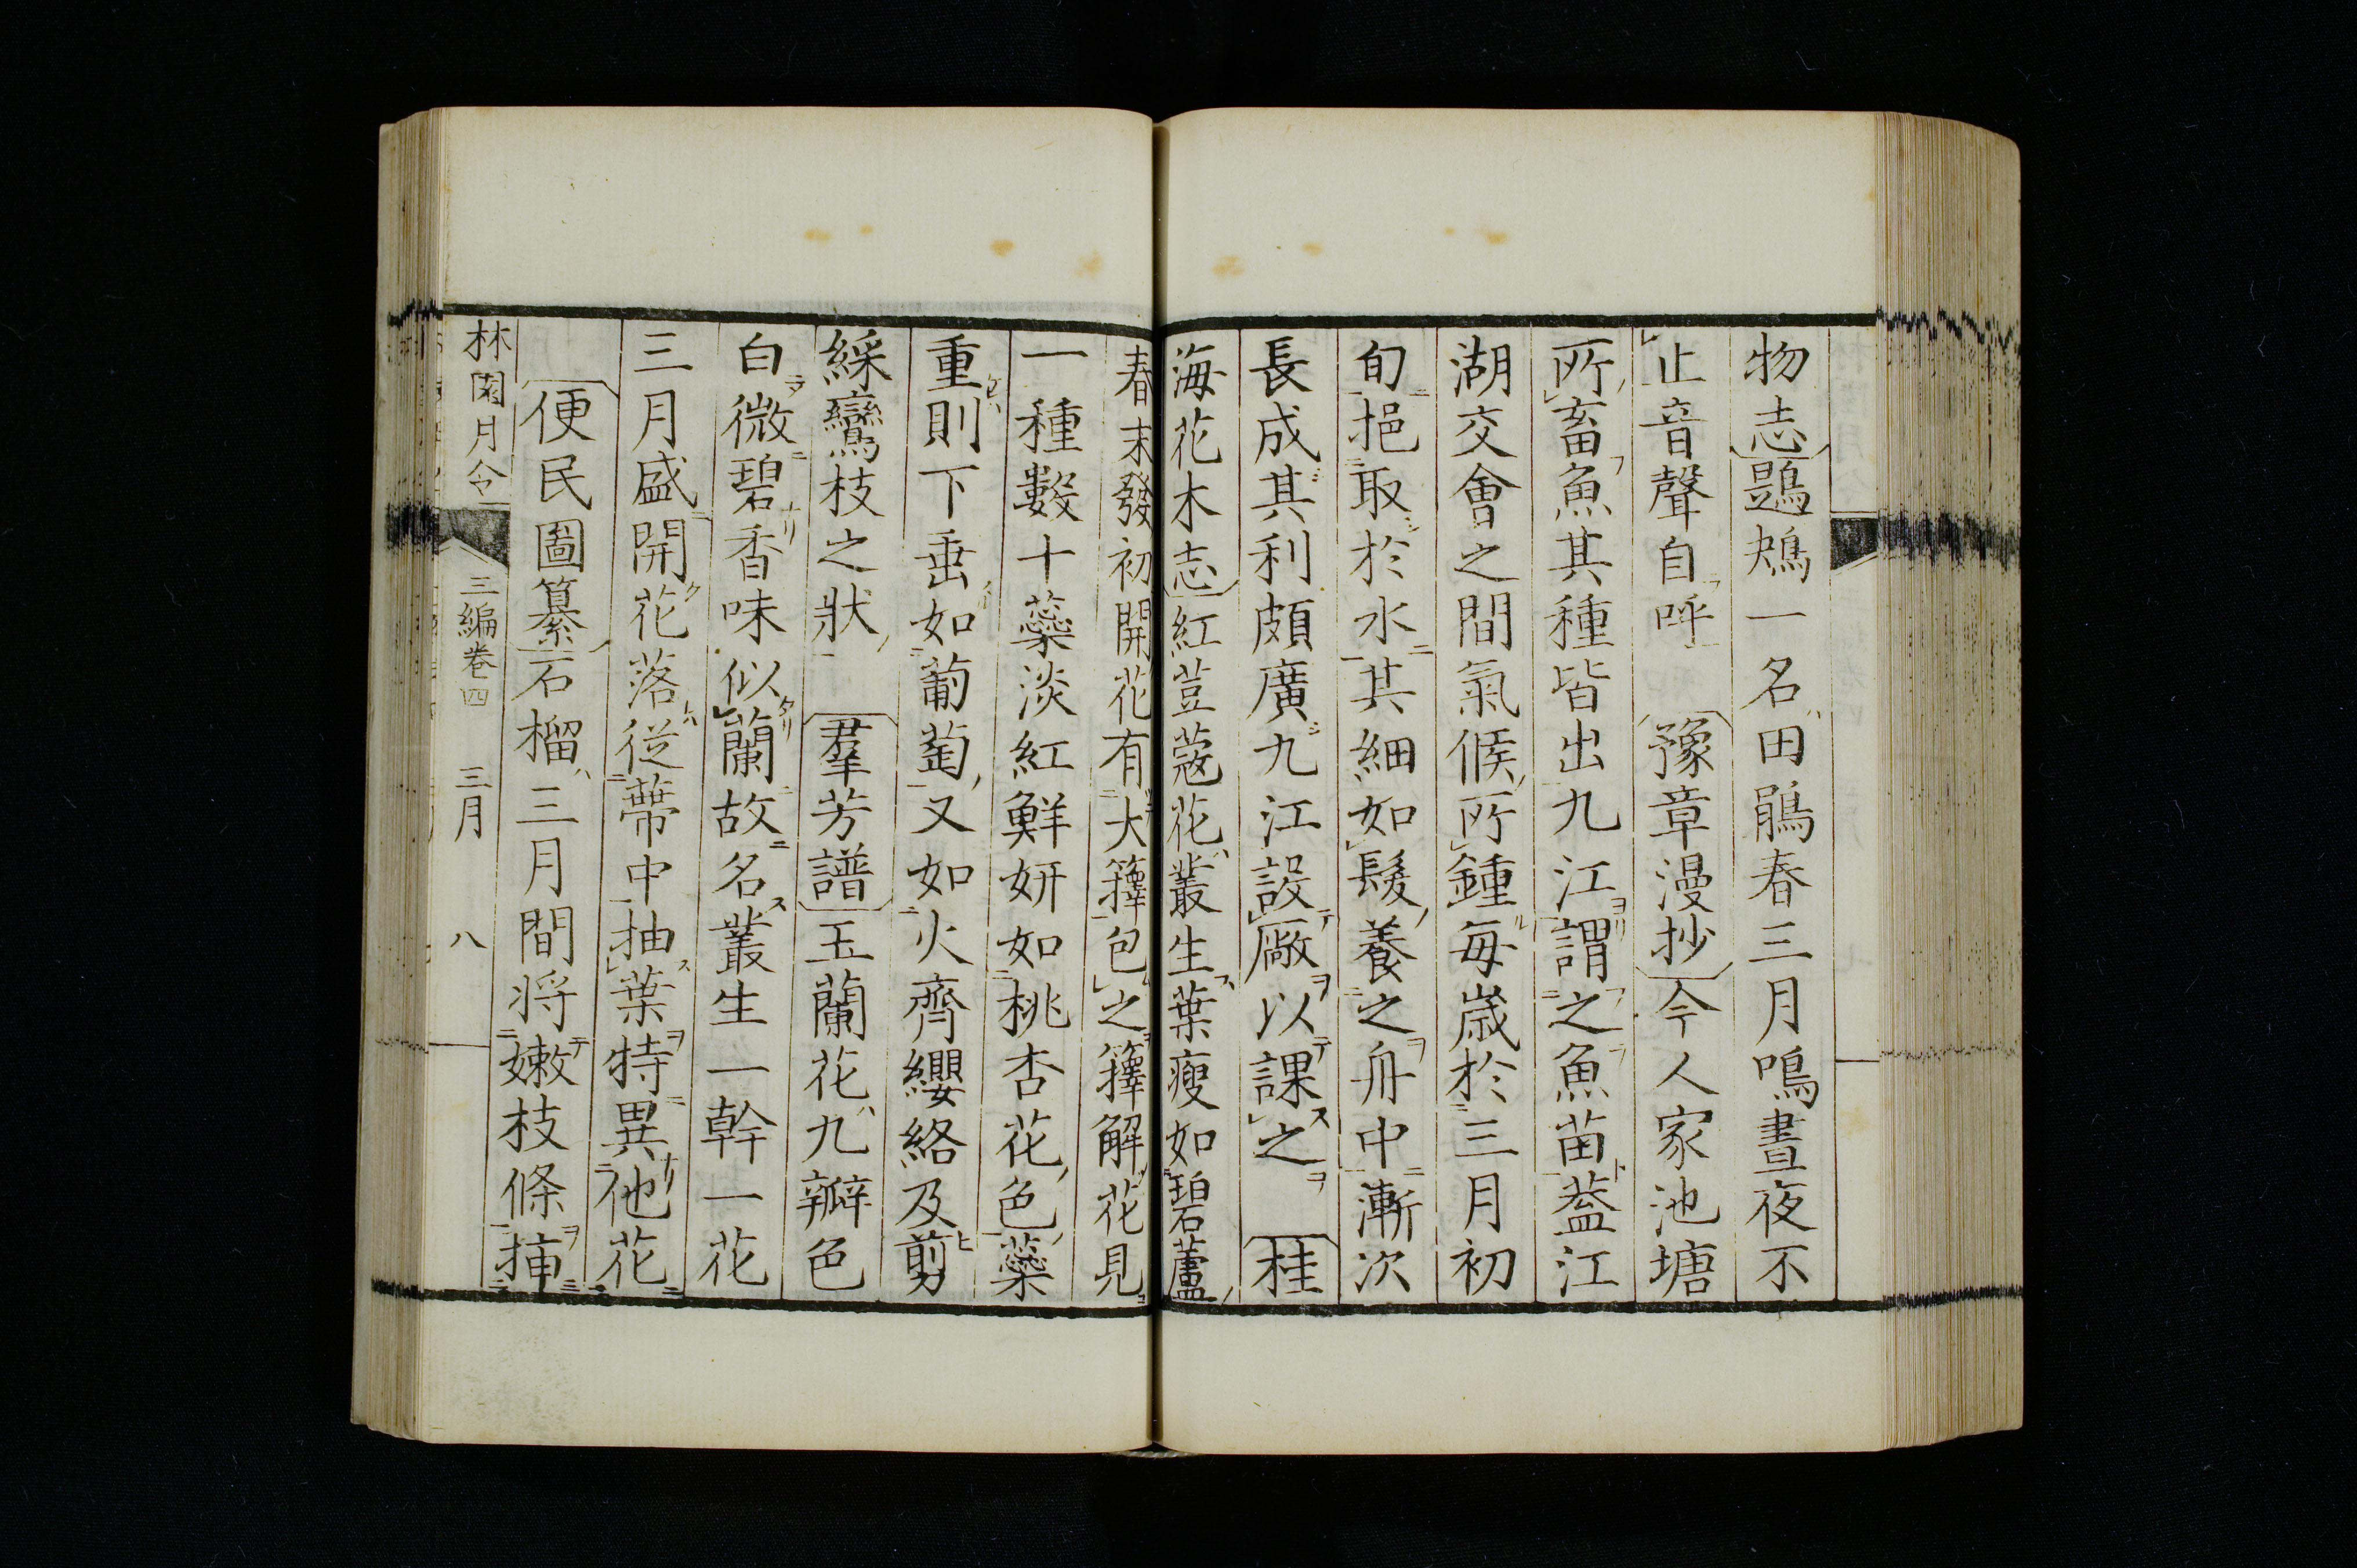 物志鶗鴂一名田鵑春三月鳴晝夜不
止音聲自呼 豫章漫抄今人家池塘
所畜魚其種皆出九江謂之魚苗葢江
湖交會之間氣候所鍾每歲於三月初
旬挹取於水其細如髮養之舟中漸次
長成其利頗廣九江設廠以課之 桂
海花木志紅荳蔻花叢生葉瘦如碧蘆
春末發初開花有大籜包之籜解花見
一種數十蘂淡紅鮮妍如桃杏花色蘂
重則下垂如葡萄又如火齊纓絡及剪
綵鸞枝之狀 羣芳譜玉蘭花九瓣色
白微碧香味似蘭故名叢生一幹一花
三月盛開花落從蔕中抽葉特異他花
便民圖纂石榴三月間將嫩枝條揷
林園月令 三編卷四 三月 八